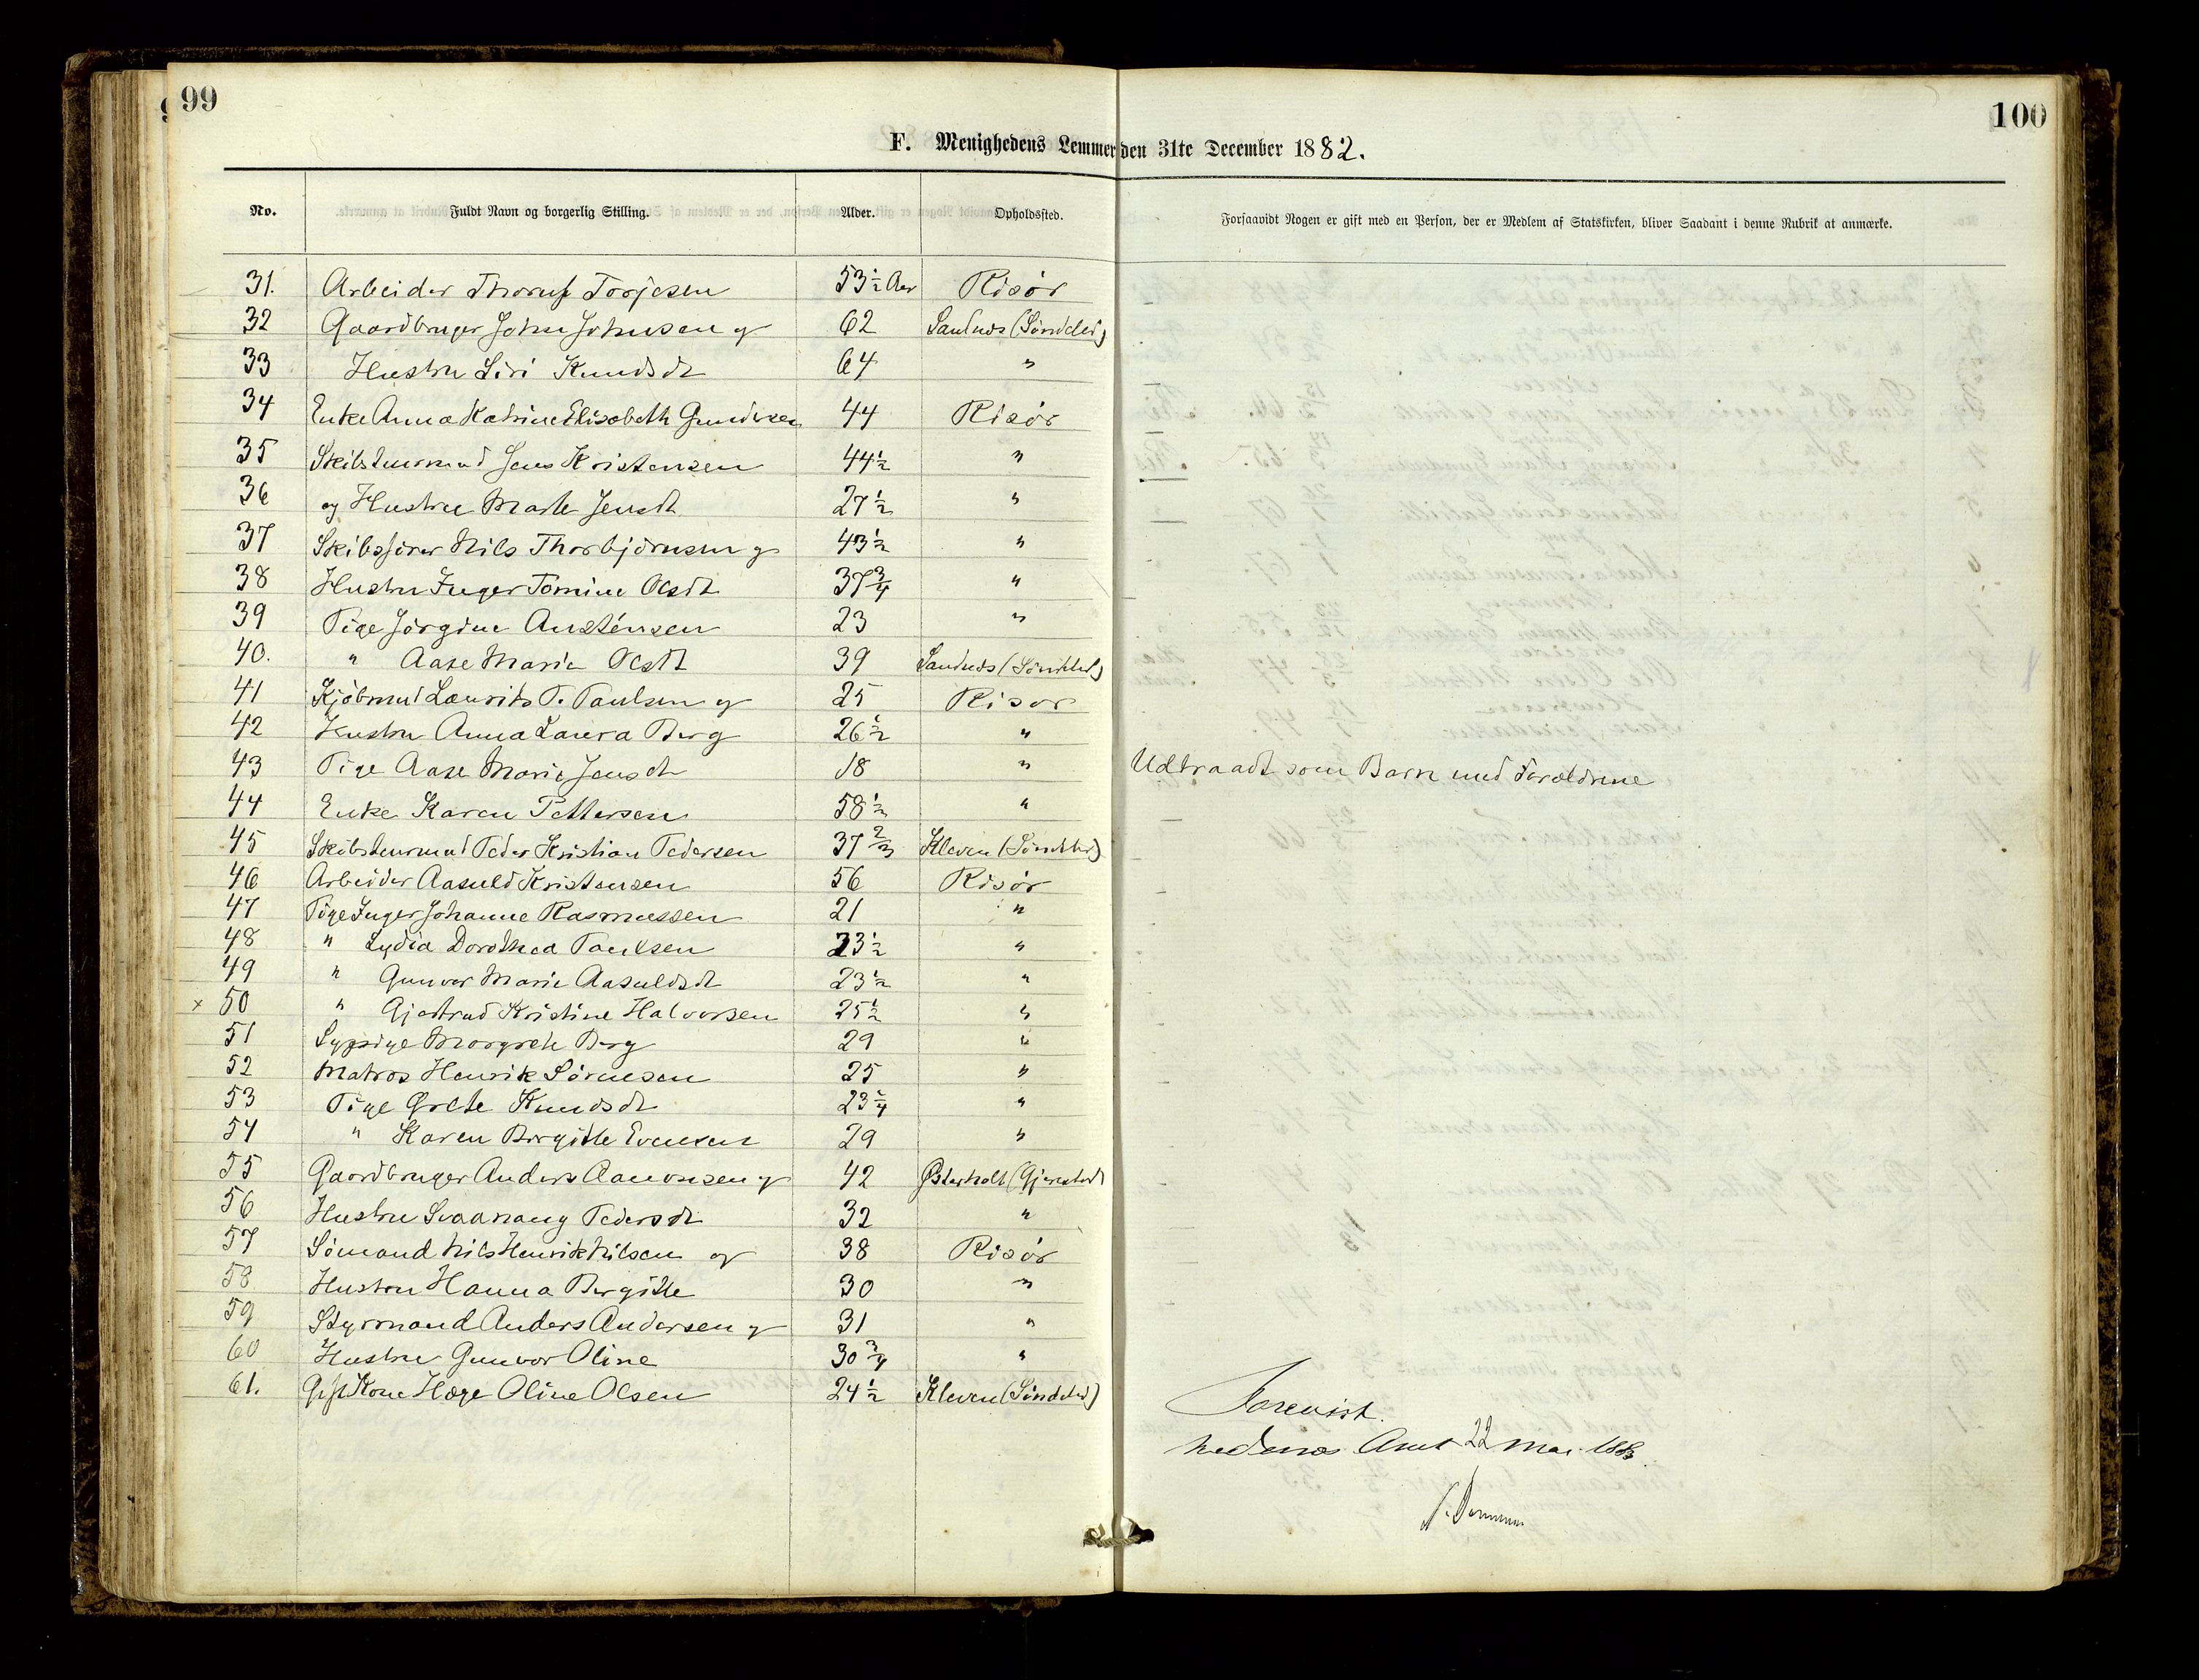 99
100
F. Menighedens Lemmer den 31te December 1882.
No. Fuldt Navn og borgerlig Stilling. Alder. Opholdssted. Forsaavidt Nogen er gift med en Person, der er Medlem af Statskirken, bliver Saadant i denne Rubrik at anmærke.
31. Arbeider Torjesen 53½ Aar Risör
32 Gaardbruger John Johnsen og 62 Sandnes (Sönddeled)
33 Hustru Siri Knudsdt 64 "
34 Enke Anna Katrine Elisabeth Gundersen 44 Risör
35 Skibstuermand Jens Kristensen 44½ "
36 og Hustru Marte Jensdt 27½ "
37 Skibsförer Nils Thorbjörnsen og 43½ "
38 Hustru Inger Tomine Olsdt 37¾ "
39 Pige Jörgine Austensen 23 "
40. " Aase Marie Olsdt 39 Sandnes (Sönddeled)
41 Kjöbmand Laurits T. Paulsen og 25 Risor
42 Hustru Anna Laura Berg 26½ "
43 Pige Aase Marie Jensdt 18 " Udtraadt som Barn med Foræld­rene
44 Enke Karen Pettersen 58½ "
45 Skibstuermand Peder Kristian Pedersen 37⅔ Kleven (Sönddeled)
46 Arbeider Aasuld Kristensen 56 Risör
47 Pige Inger Johanne Rasmussen 21 "
48 " Lydia Dorothea Paulsen 23½ "
49 " Gunvor Marie Aasuldsdt 23½ "
x 50 " Gjertrud Kristine Halvorsen 25½ "
51 Sypige Margrete Berg 29 "
52 Matros Henrik Sörensen 25 "
53 Pige Grete Knudsdt 23¼ "
54 " Karen Birgitte Evensen 29 "
55 Gaardbruger Anders Aanonsen og 42 Østerholt (Gjerestad)
56 Hustru Svaanaug Pedersdt 32 "
57 Sömand Nils Henrik Nilsen og 38 Risör
58 Hustru Hanna Bergitte 30 "
59 Styrmand Anders Andersen og 31 "
60 Hustru Gunvor Oline 30¾ "
61. Gift Kone Hæge Oline Olsen 24½ Kleven (Sönddeled)
Forevist.
Nedenes Amt 22 Mai 1883.